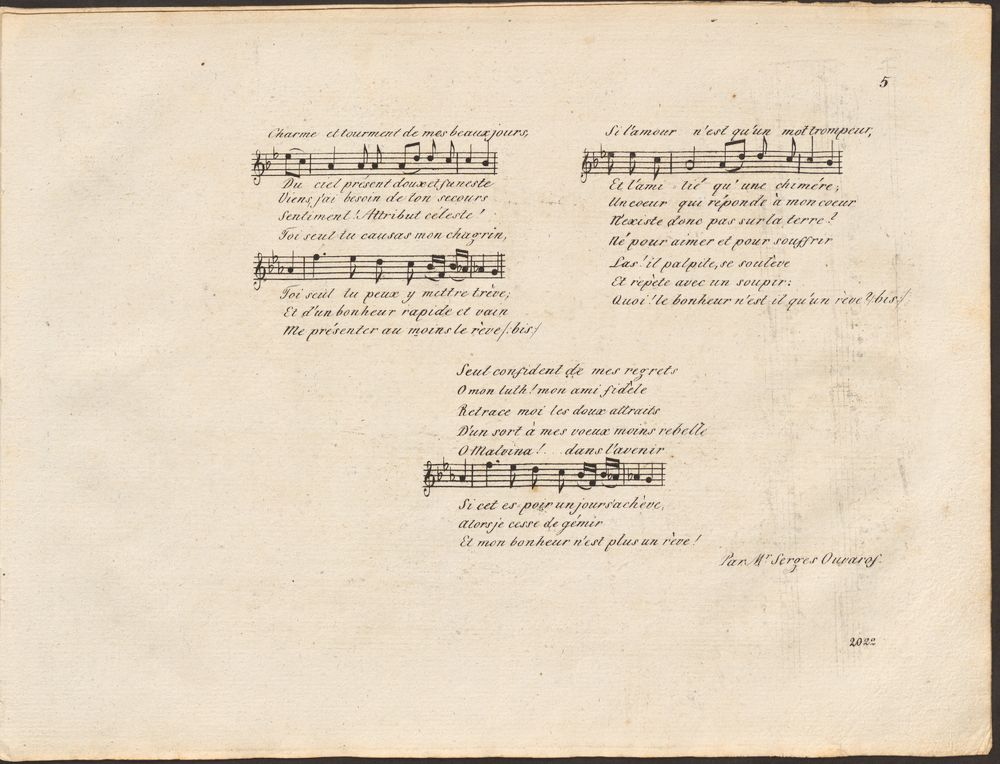 5
Charme et tourment de mes beaux jours,
Du ciel présent doux et funeste
Viens, j'ai besoin de ton secours
Sentiment! Attribut céleste!
Toi seul tu causas mon chagrin,
Toi seul tu peux y mettre trève;
Et d'un bonheur rapide et vain
Me présenter au moins le rève /:bis:/
Si l'amour n'est qu'un mot trompeur,
Et l'ami tié qu'une chimére;
Un coeur qui réponde à mon coeur
N'existe donc pas sur la terre?
Né pour aimer et pour souffrir
Las! il palpite, se soulève
Et repète avec un soupir:
Quoi! le bonheur n'est il qu'un rève? /:bis:/
Seul confident de mes regrets
O mon luth! mon ami fidèle
Retrace moi les doux attraits
D'un sort à mes voeux moins rebelle
O Malvina! .. dans l'avenir
Si cet es-poir un jour s'achève,
Alors je cesse de gémir
Et mon bonheur n'est plus un rève!
Par Mr Serges Ouvarof.
2022